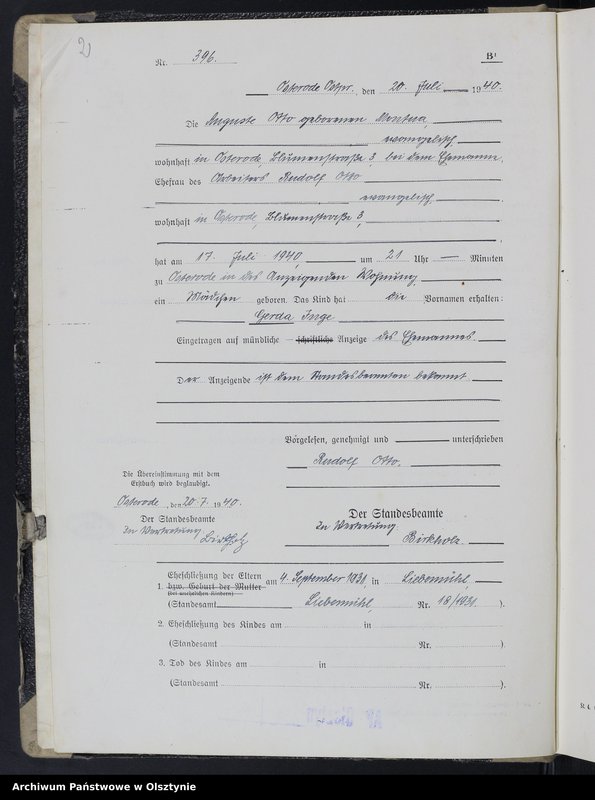 2
Nr. 396. B¹
Osterode Ostpr., den 20. Juli 1940.
Die Auguste Otto geborenen
evangelisch
wohnhaft in Osterode, Blumenstraße 3, bei dem Ehemanne,
Ehefrau des Arbeiters Rudolf Otto
evangelisch,
wohnhaft in Osterode, Blumenstraße 3,
hat am 17. Juli 1940, um 21 Uhr — Minuten
zu Osterode in des Anzeigenden Wohnung,
ein Mädchen geboren. Das Kind hat die Vornamen erhalten:
Gerda Inge
Eingetragen auf mündliche – schriftliche Anzeige des Ehemannes.
Der Anzeigende ist dem Standesbeamten bekannt
Vorgelesen, genehmigt und unterschrieben
Rudolf Otto.
Die Übereinstimmung mit dem
Erstbuch wird beglaubigt.
Osterode, den 20. 7. 1940.
Der Standesbeamte
In Vertretung
Birkholz
Der Standesbeamte
In Vertretung
Birkholz.
1. Eheschließung der Eltern am 4. September 1931 in Liebemühl,
bzw. Geburt der Mutter
(bei unehelichen Kindern)
(Standesamt Liebemühl, Nr. 18/1931.).
2. Eheschließung des Kindes am in
(Standesamt Nr. ).
3. Tod des Kindes am in
(Standesamt Nr. ).
Archiwum Państwowe w Olsztynie